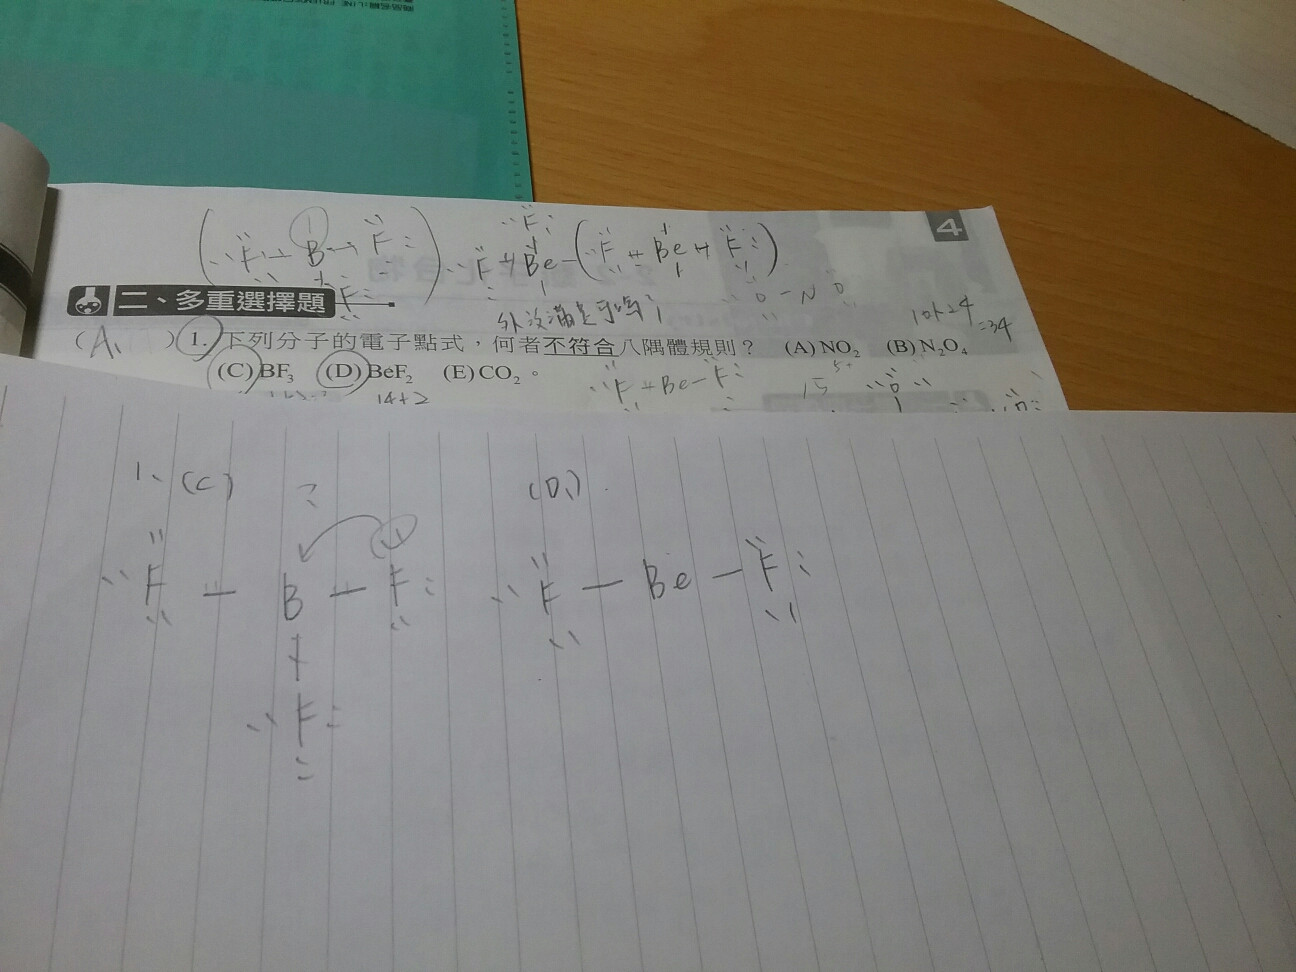 4
F B F
F
F
F Be F Be F
外沒滿是可嗎?
O - N O
10+24=34
二、多重選擇題
(A, ) 1. 下列分子的電子點式，何者不符合八隅體規則？ (A) NO₂ (B) N₂O₄
(C) BF₃ (D) BeF₂ (E) CO₂。
F + Be - F
14+2
15
1、(C) ? (D、)
F - B - F F - Be - F
F